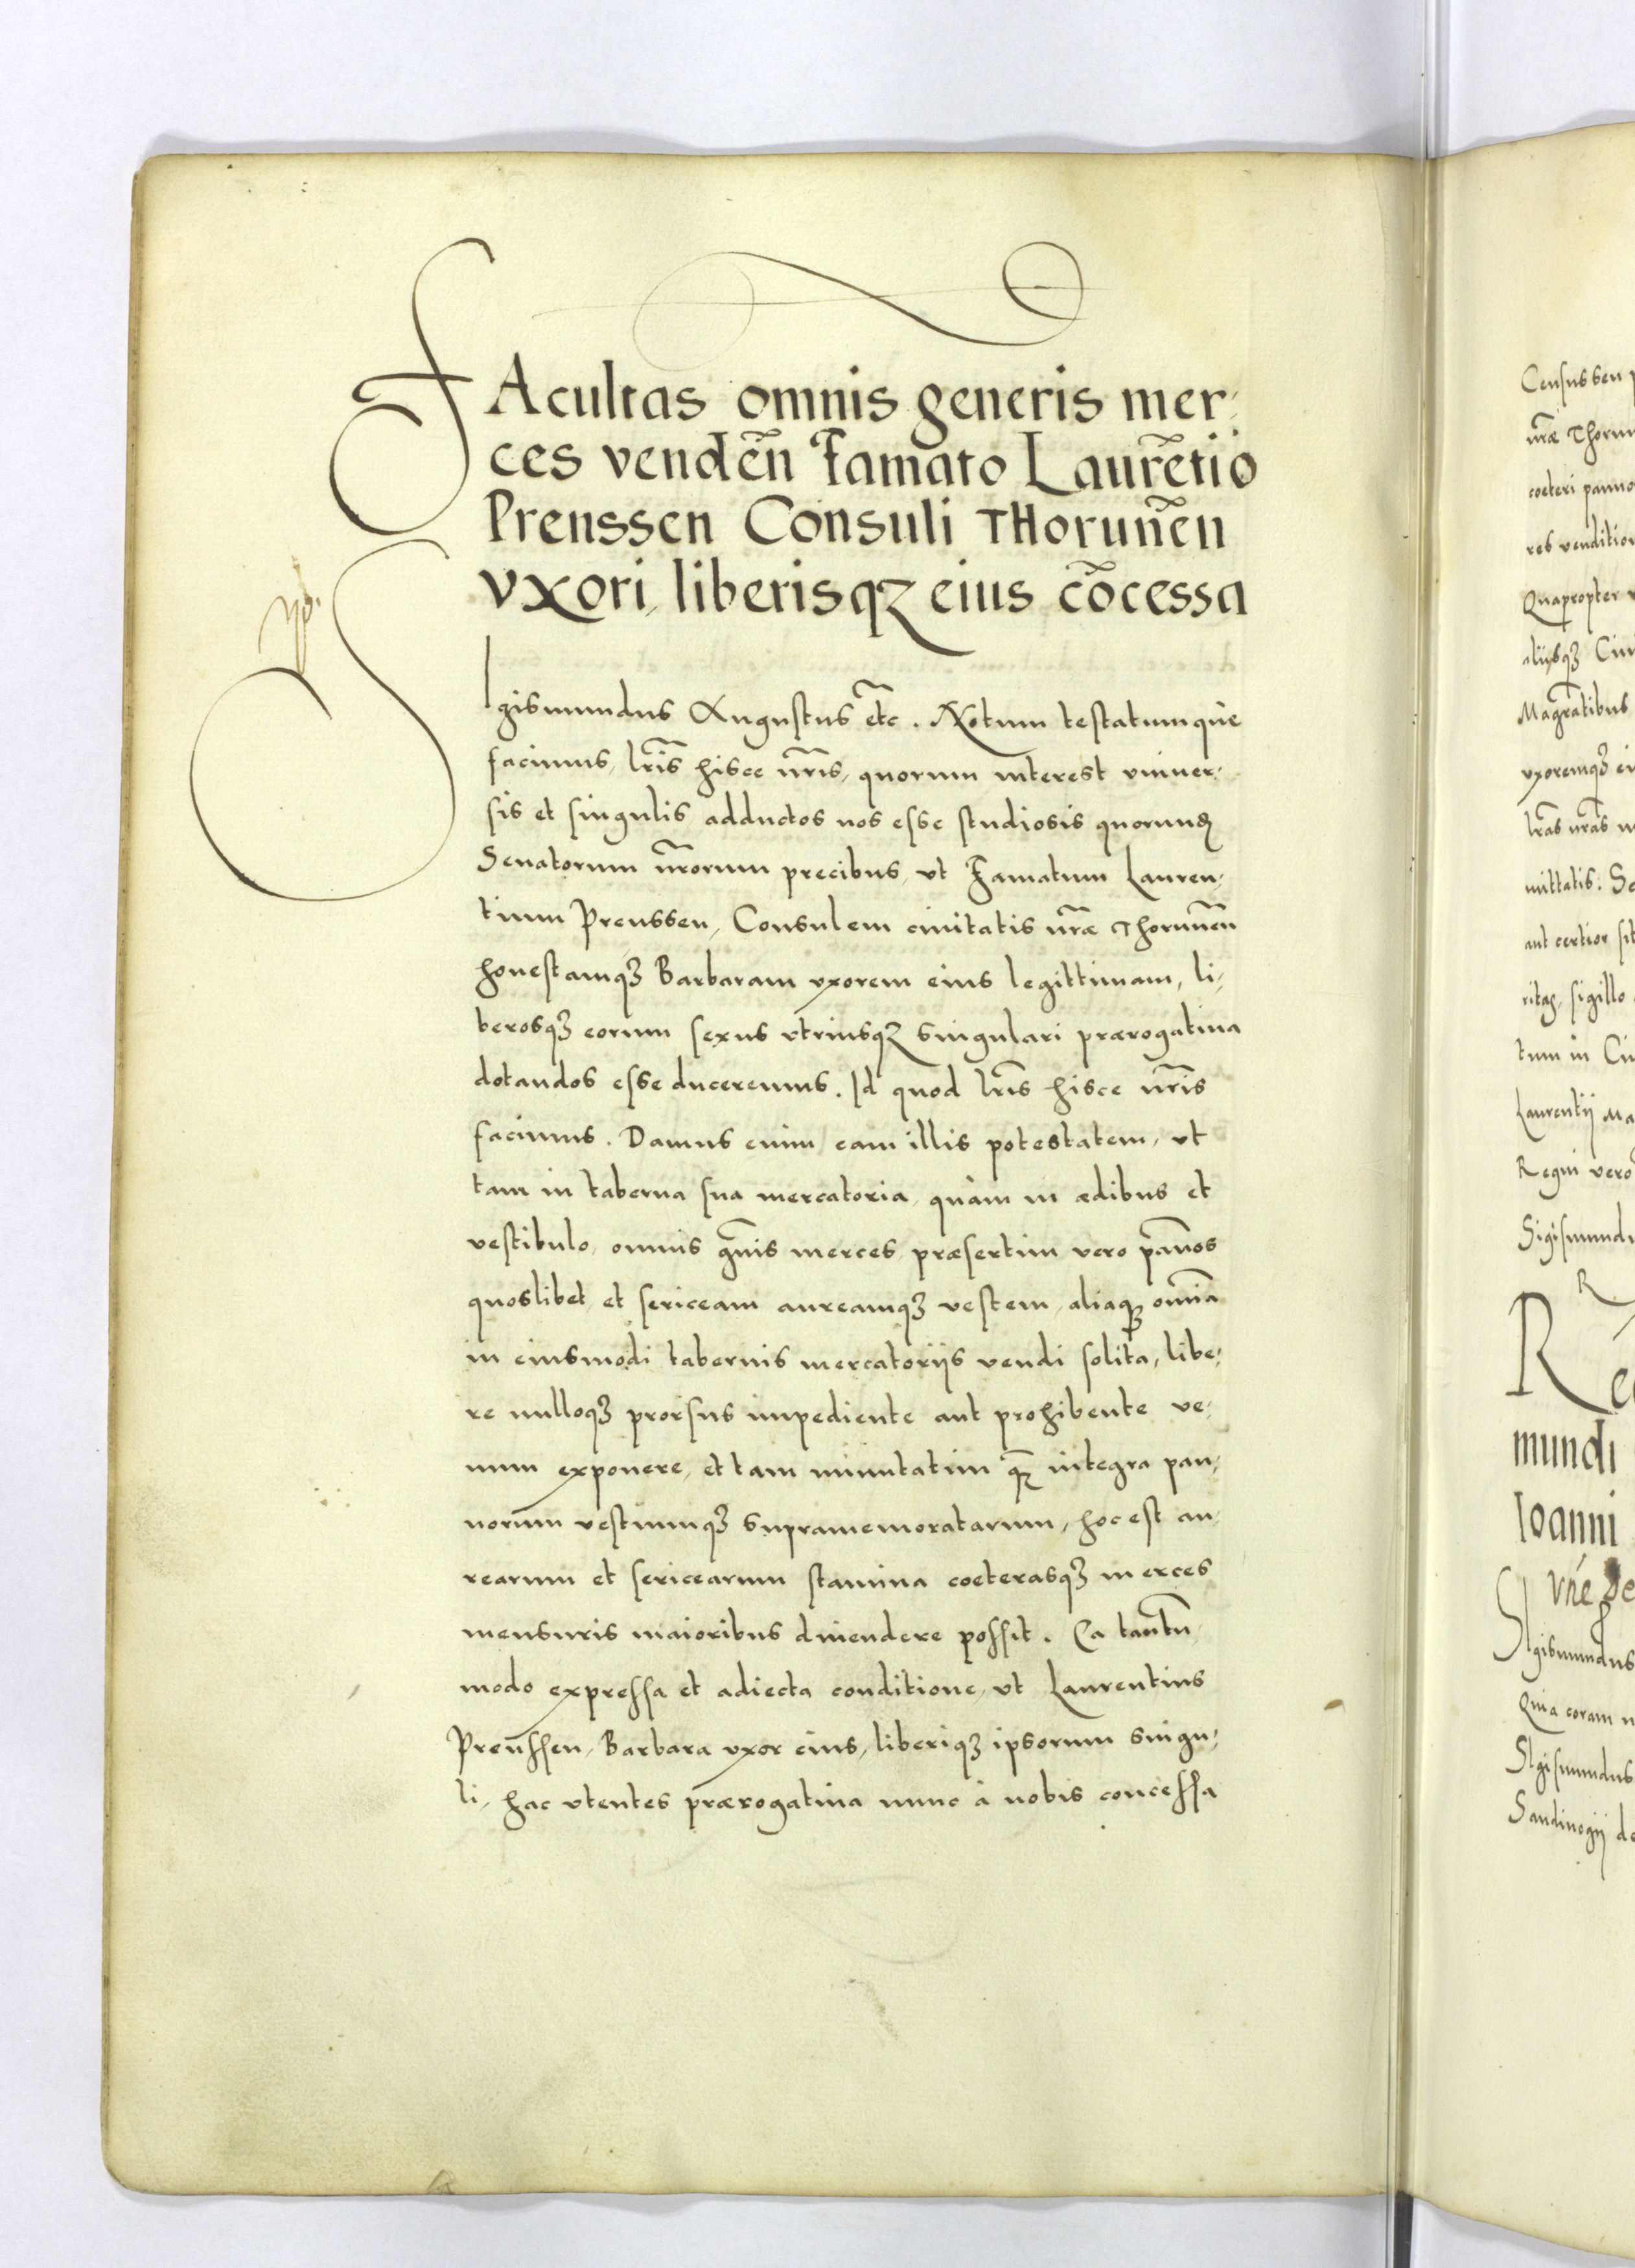 FAcultas omnis generis mer,
ces venden̄ famato Laurētio
Prenssen Consuli THorunen̄
vxori, liberisqz eius cōcessa
SIgismundus Augustus etc̄. Notum testatumque
facimus, lr̄is hisce nr̄is, quorum interest vniuer,
sis et singulis adductos nos esse studiosis quorund
Senatorum nr̄orum precibus, vt Famatum Lauren,
tium Prenssen, Consulem ciuitatis nr̄æ Thorunen̄
honestamqz Barbaram vxorem eius legittimam, li,
berosqz eorum sexus vtriusqz singulari prærogatiua
dotandos esse duceremus. Id quod lr̄is hisce nr̄is
facimus. Damus enim eam illis potestatem, vt
tam in taberna sua mercatoria, quàm in ædibus et
vestibulo, omnis gn̄is merces, præsertim vero pan̄os
quoslibet, et sericeam aureamqz vestem, aliaqz omn̄ia
in eiusmodi tabernis mercatorijs vendi solita, libe,
re nulloqz prorsus impediente aut prohibente ve,
num exponere, et tam minutatim qz̄ integra pan,
norum vestiumqz supramemoratarum, hoc est au,
rearum et sericearum stamina coeterasqz merces
mensuris maioribus diuendere possit. Ea tantū,
modo expressa et adiecta conditione, vt Laurentius
Prenssen, Barbara vxor eius, liberiqz ipsorum singu,
li, hac vtentes prærogatiua nunc à nobis concessa
Census seu
nr̄æ Thorun
coeteri panno
res venditio
Quapropter
alijsqz Ciui
Magr̄atibus
vxoremqz ei
lr̄as nr̄as
mittatis. Se
aut certior sit
sigillo
tum in Ci
Laurentij Ma
Regni vero
Sigismundi
R
Re
mundi
Ioanni
SIgismundus
Quia coram n
SIgismundus
Sandiuogij de